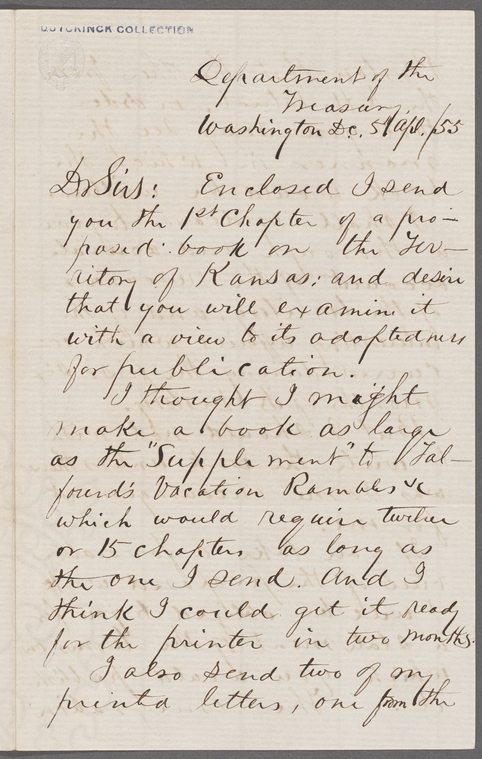 DUYCKINCK COLLECTION
Department of the
Treasury,
Washington D.c. 5 apl. /55
Dr Sirs: Enclosed I send
you the 1st Chapter of a pro-
posed book on the Ter-
ritory of Kansas: and desire
that you will examine it
with a view to its adaptedness
for publication.
I thought I might
make a book as large
as the "Supplement" to Tal-
fourd's Vacation Rambles &c
which would require twelve
or 15 chapters as long as
the one I send. And I
think I could get it ready
for the printer in two months.
I also send two of my
printed letters, one from the